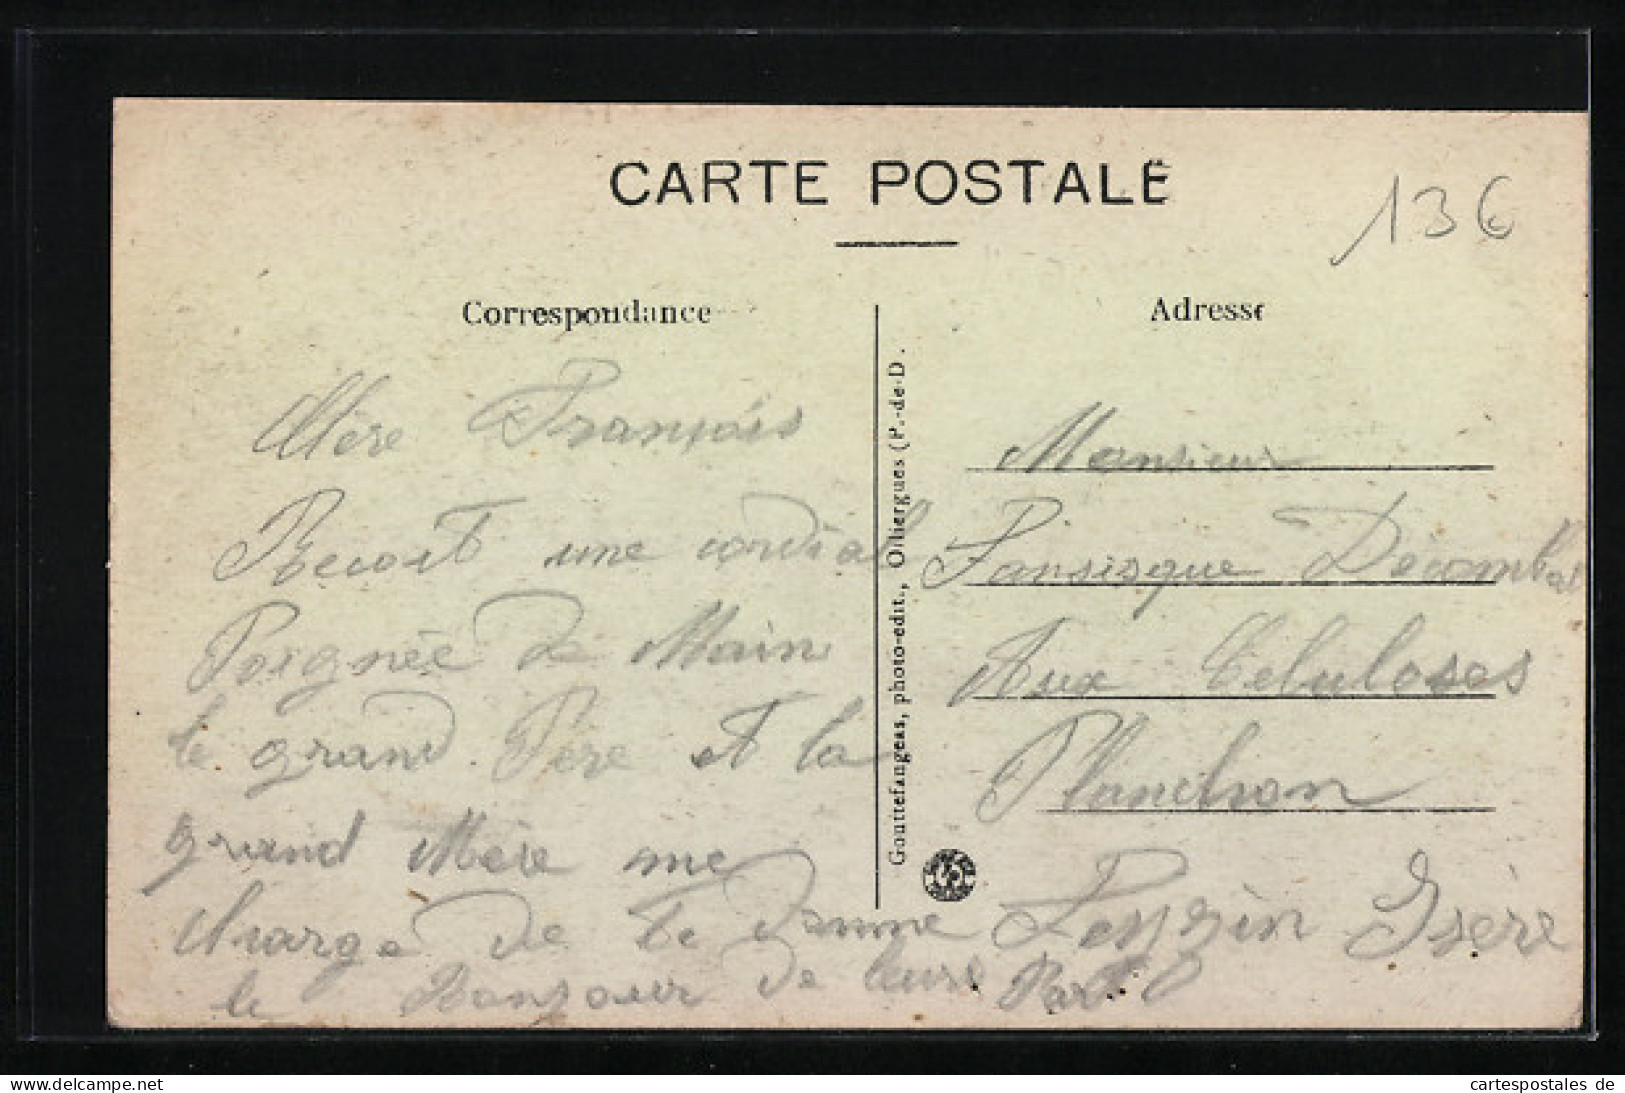 CARTE POSTALE
13€
Correspondance
François
Recoit une cordial
Poignée de Main
le grand Père et la
grand Mère me
charge de te donne
le Bonjour de leurs Part
Gouttefangeas, photo-édit., Olliergues (P.-de-D.
Adresse
Monsieur
Fansisque Décombat
Aux Celuloses
Planchon
Isère
www.delcampe.net
cartespostales de